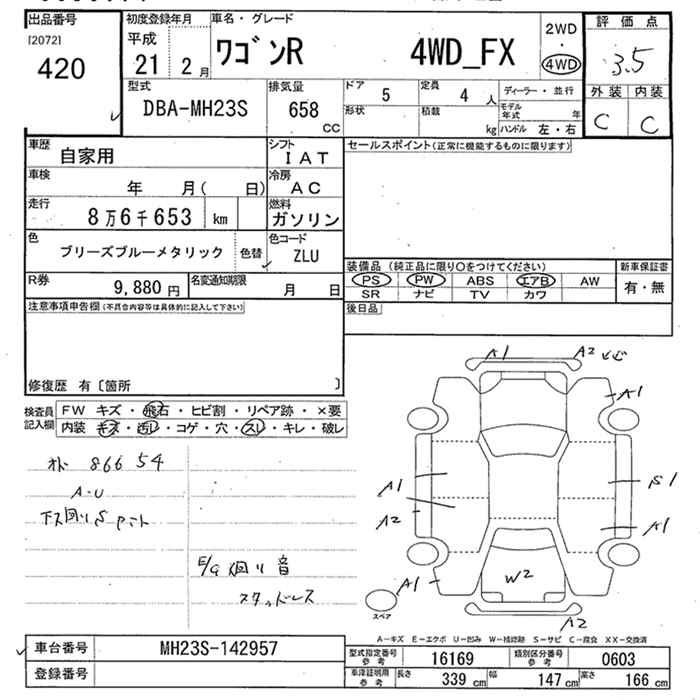 出品番号
[2072]
420
初度登録年月
平成
21 2 月
車名・グレード
ワゴンR 4WD_FX
2WD
・
4WD
評価点
3.5
外装 内装
C C
型式
DBA-MH23S
排気量
658
CC
ドア
5
定員
4 人
形状
積載
kg
ディーラー・並行
モデル年式 年
ハンドル 左・右
車歴
自家用
シフト
IAT
セールスポイント(正常に機能するものに限ります)
車検
年 月( 日)
冷房
AC
走行
8万6千653 km
燃料
ガソリン
色
ブリーズブルーメタリック
色替
色コード
ZLU
装備品 (純正品に限り○をつけてください)
新車保証書
PS PW ABS エアB AW
有・無
SR ナビ TV カワ
R券
9,880 円
名変通知期限
月 日
後日品
注意事項申告欄(不具合内容等は具体的に記入して下さい)
修復歴 有〔箇所 〕
検査員記入欄
FW キズ・飛石・ヒビ割・リペア跡・×要
内装 キズ・汚レ・コゲ・穴・スレ・キレ・破レ
866 54
A-U
E/g 廻り 音
スタッドレス
A1 A2
A1
A1
A2
S1
A1
A1
W2
A2
スペア
A-キズ E-エクボ U-凹み W-補跡 S-サビ C-腐食 XX-交換済
車台番号
MH23S-142957
登録番号
型式指定番号 参考
16169
類別区分番号 参考
0603
車洋証明用 参考
長さ 339 cm
幅 147 cm
高さ 166 cm